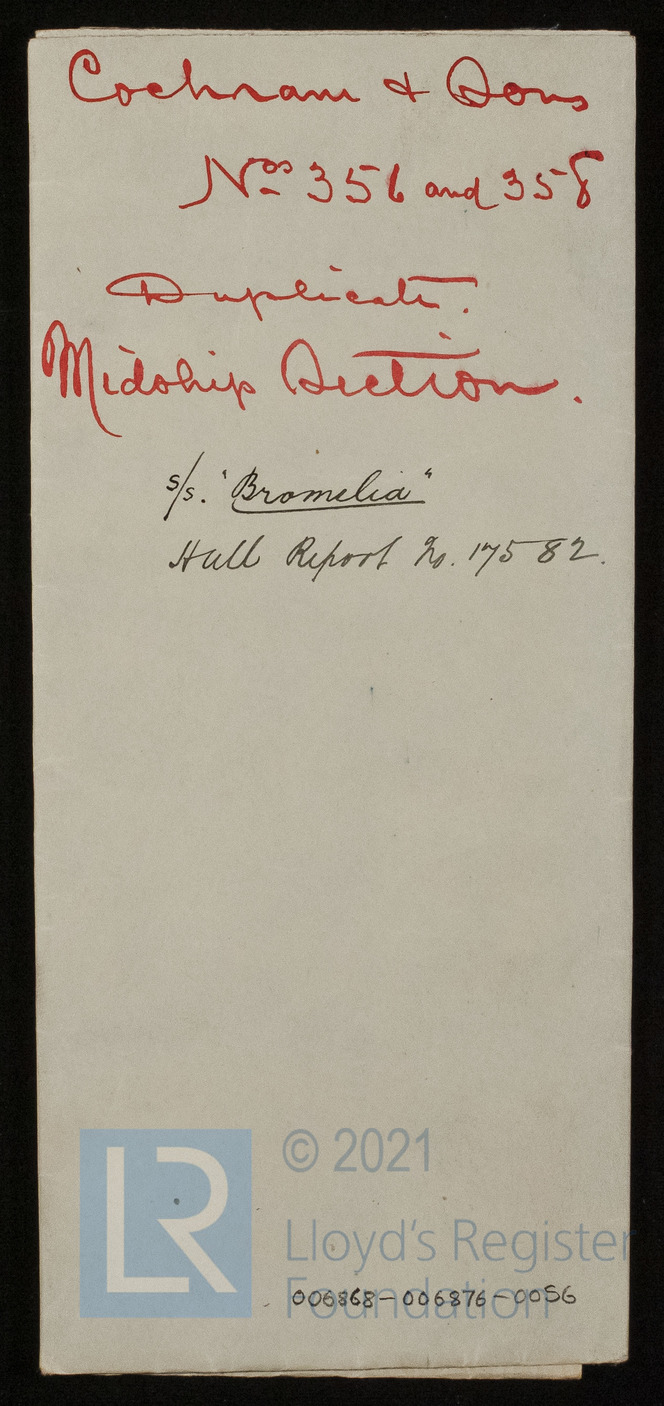 Cochrane & Sons
Nos 356 and 358
Duplicate.
Midship Section.
s/s. "Bromelia"
Hull Report No. 17582.
LR
© 2021
Lloyd's Register
Foundation
006868-006876-0056